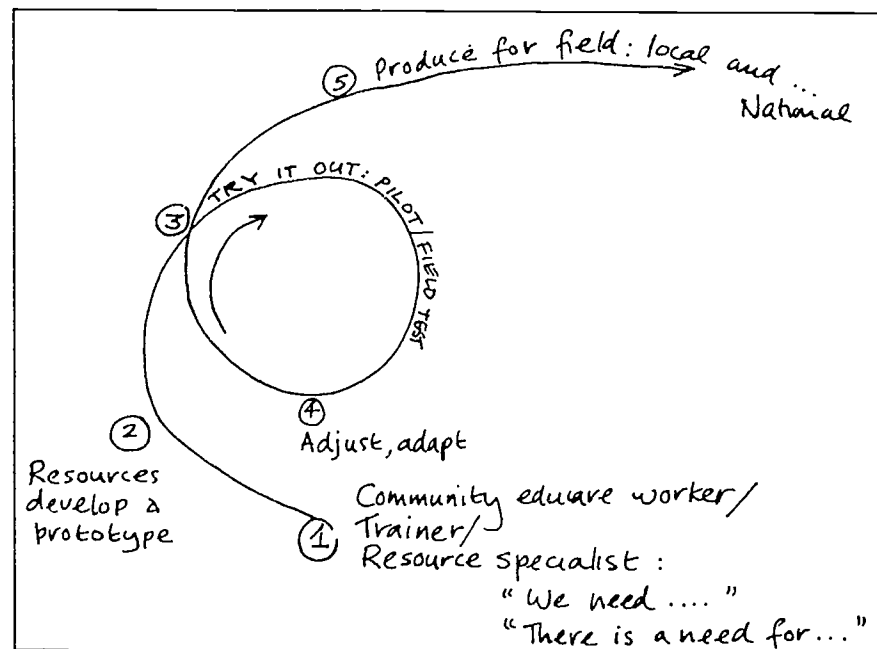 ⑤ Produce for field: local and ...
National
③ TRY IT OUT: PILOT/FIELD TEST
④
Adjust, adapt
②
Resources
develop a
prototype
① Community educare worker/
Trainer/
Resource specialist:
"We need ...."
"There is a need for..."